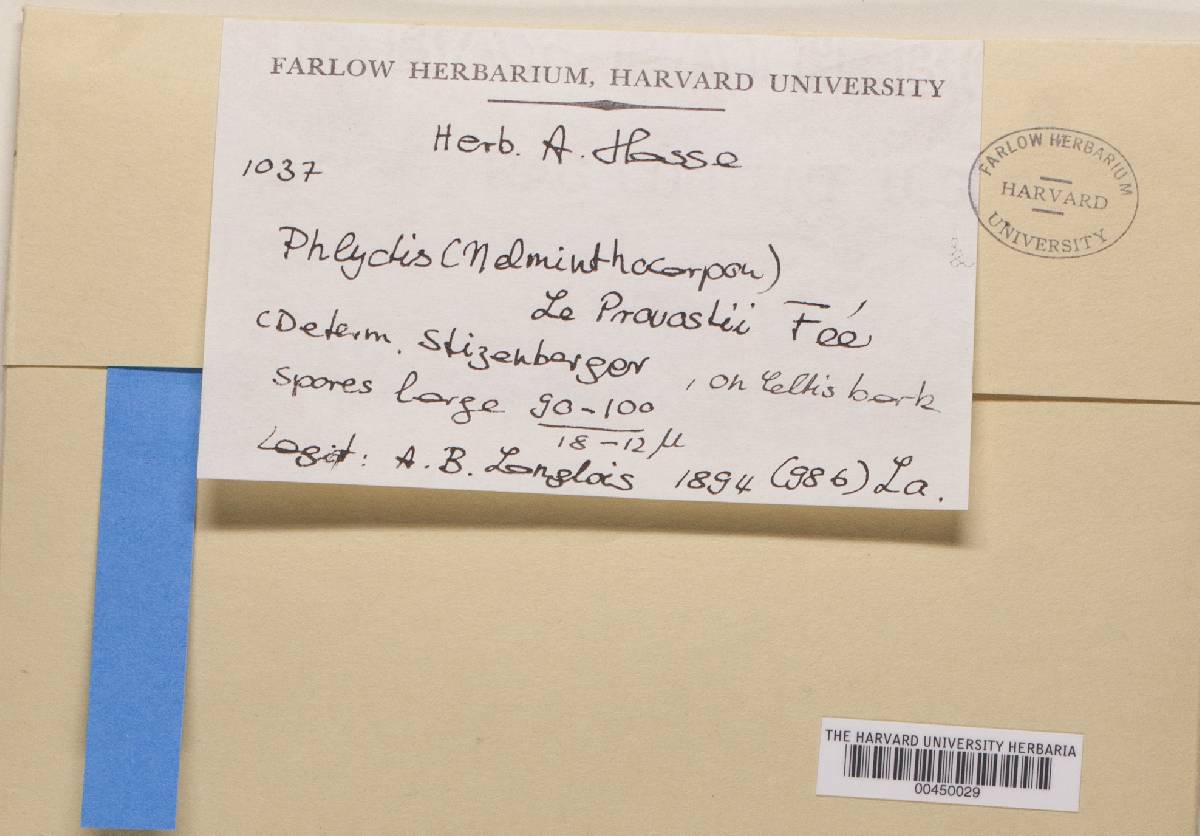 FARLOW HERBARIUM, HARVARD UNIVERSITY
Herb. A. Hasse
1037
Phlyctis (Helminthocarpon)
Le Provostii Fée
(Determ. Stizenberger
, on Celtis bark
Spores large 90-100
18-12 μ
Legit: A. B. Langlois 1894 (986) La.
FARLOW HERBARIUM
HARVARD
UNIVERSITY
THE HARVARD UNIVERSITY HERBARIA
00450029